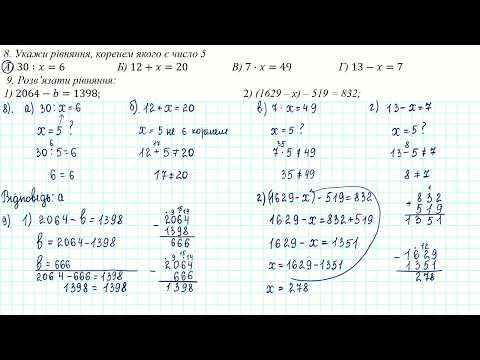 8. Укажи рівняння, коренем якого є число 5
А) 30 : x = 6 Б) 12 + x = 20 В) 7 · x = 49 Г) 13 − x = 7
9. Розв'язати рівняння:
1) 2064 − b = 1398; 2) (1629 − x) − 519 = 832;
8). а) 30 : x = 6 б). 12 + x = 20 в) 7 · x = 49 г) 13 − x = 7
x = 5 ? x = 5 не є коренем x = 5 ? x = 5 ?
6 17 35 8
30 : 5 = 6 12 + 5 ≠ 20 7 · 5 ≠ 49 13 − 5 ≠ 7
6 = 6 17 ≠ 20 35 ≠ 49 8 ≠ 7
Відповідь: а
9) 1) 2064 − b = 1398
b = 2064 − 1398
b = 666
2064 − 666 = 1398
1398 = 1398
2064
1398
666
− 2064
666
1398
2) (1629 − x) − 519 = 832
1629 − x = 832 + 519
1629 − x = 1351
x = 1629 − 1351
x = 278
+ 832
519
1351
− 1629
1351
278